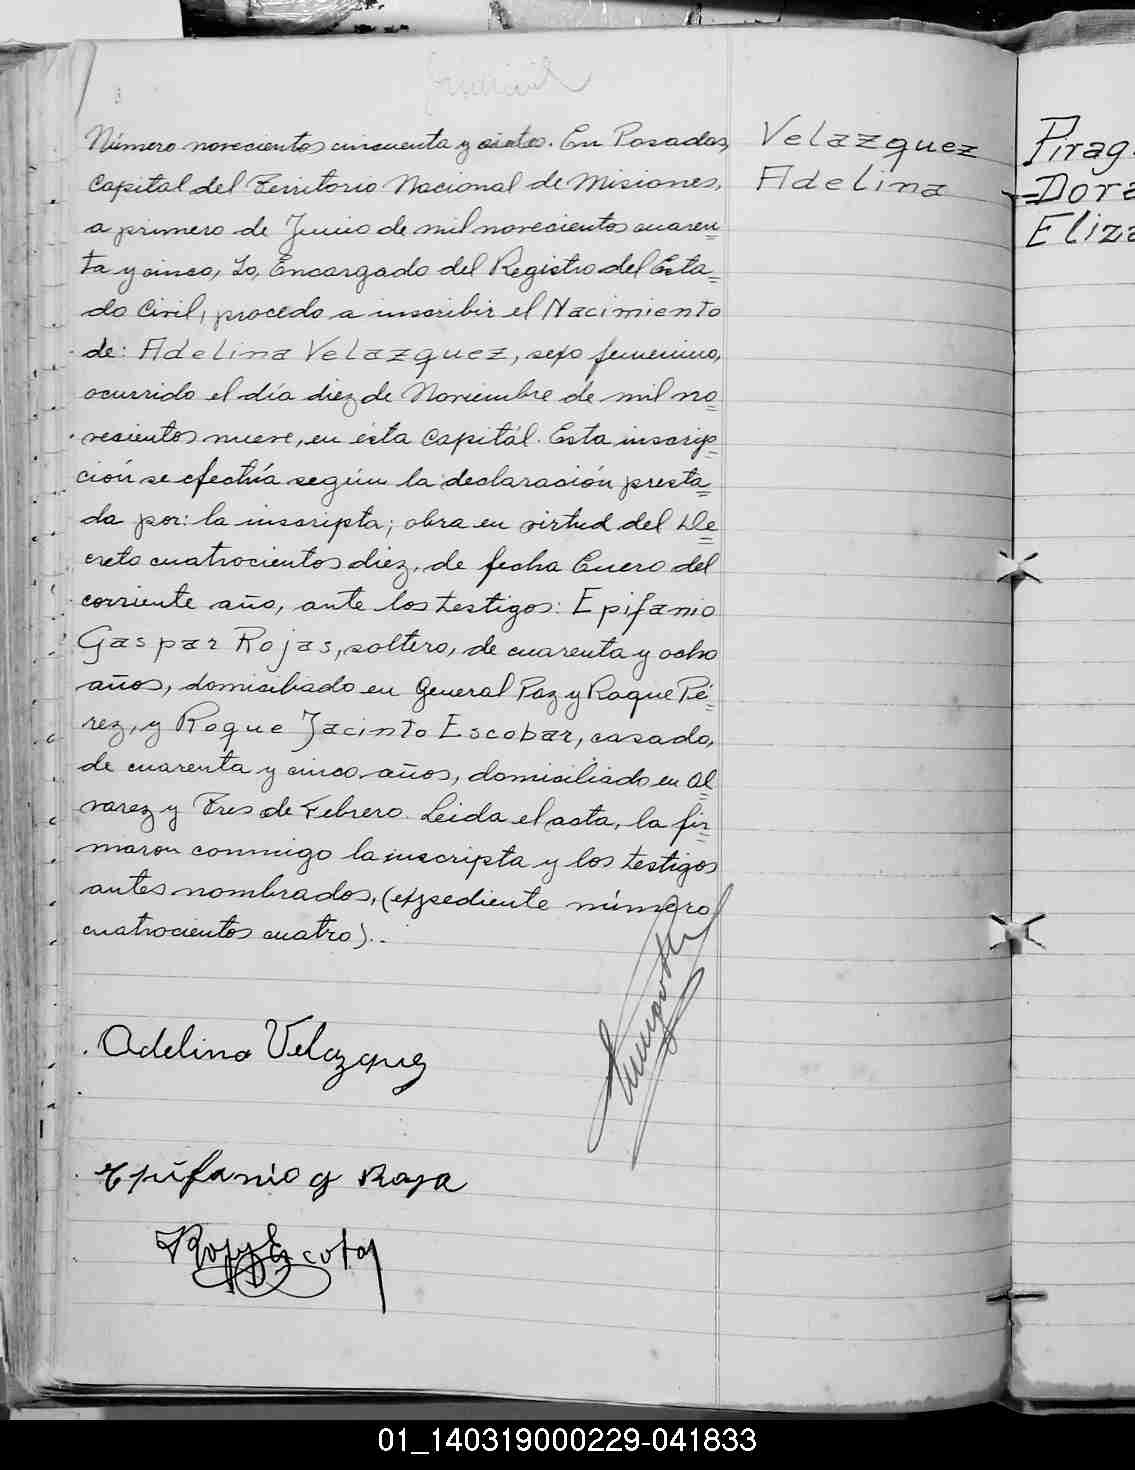 Judicial
Número novecientos cincuenta y siete. En Posadas,
Capital del Territorio Nacional de Misiones,
a primero de Junio de mil novecientos cuaren=
ta y cinco, Yo, Encargado del Registro del Esta=
do Civil, procedo a inscribir el Nacimiento
de: Adelina Velazquez, sexo femenino,
ocurrido el día diez de Noviembre de mil no=
vecientos nueve, en ésta Capitál. Esta inscrip=
ción se efectúa según la declaración presta=
da por: la inscripta; obra en virtud del De=
creto cuatrocientos diez, de fecha Enero del
corriente año, ante los testigos: Epifanio
Gaspar Rojas, soltero, de cuarenta y ocho
años, domiciliado en General Paz y Roque Pé=
rez, y Roque Jacinto Escobar, casado,
de cuarenta y cinco años, domiciliado en Al=
varez y Tres de Febrero. Leida el acta, la fir=
maron conmigo la inscripta y los testigos
antes nombrados, (expediente número
cuatrocientos cuatro)..
Adelina Velazquez
Epifanio G Roja
Velazquez
Adelina
Pirag
Dora
Eliza
01_140319000229-041833